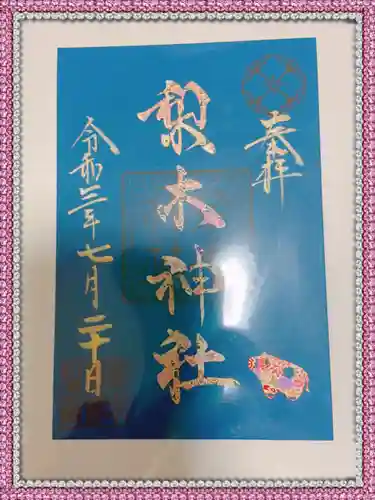 奉拝
梨木神社
令和三年七月二十日